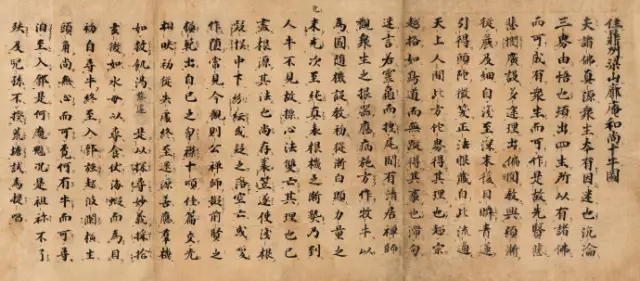 住鼎州梁山廓庵和尚十牛圖
夫諸佛真源衆生本有因迷也沉淪
三界由悟也頓出四生所以有諸佛
而可成有衆生而可作是故先賢
悲憫廣設多途理出偏圓教興頓漸
從麁及細自淺至深末後目瞬青蓮
引得頭陀微笑正法眼藏自此流通
天上人間此方他界得其理也超宗
越格如鳥道而無蹤得其事也滯句
迷言若靈龜而曳尾間有清居禪師
觀衆生之根器應病施方作牧牛以
為圖隨機設教初從漸白顯力量之
未充次至純真表根機之漸熟乃至
人牛不見故標心法雙亡其理也已
盡根源其法也尚存莎笠遂使淺根
疑悞中下紛紜或疑之落空亡或喚
作墮常見今觀則公禪師擬前賢之
模範出自己之胸襟十頌佳篇交光
相映初從失處終至還源善應群機
如救飢渴慈遠是以探尋妙義採拾
玄微如水母以尋食依海蝦而為目
初自尋牛終至入鄽強起波瀾橫生
頭角尚無心而可覓何有牛而可尋
洎至入鄽是何魔魅況是祖禰不了
殃及兒孫不揆荒塘試為提唱